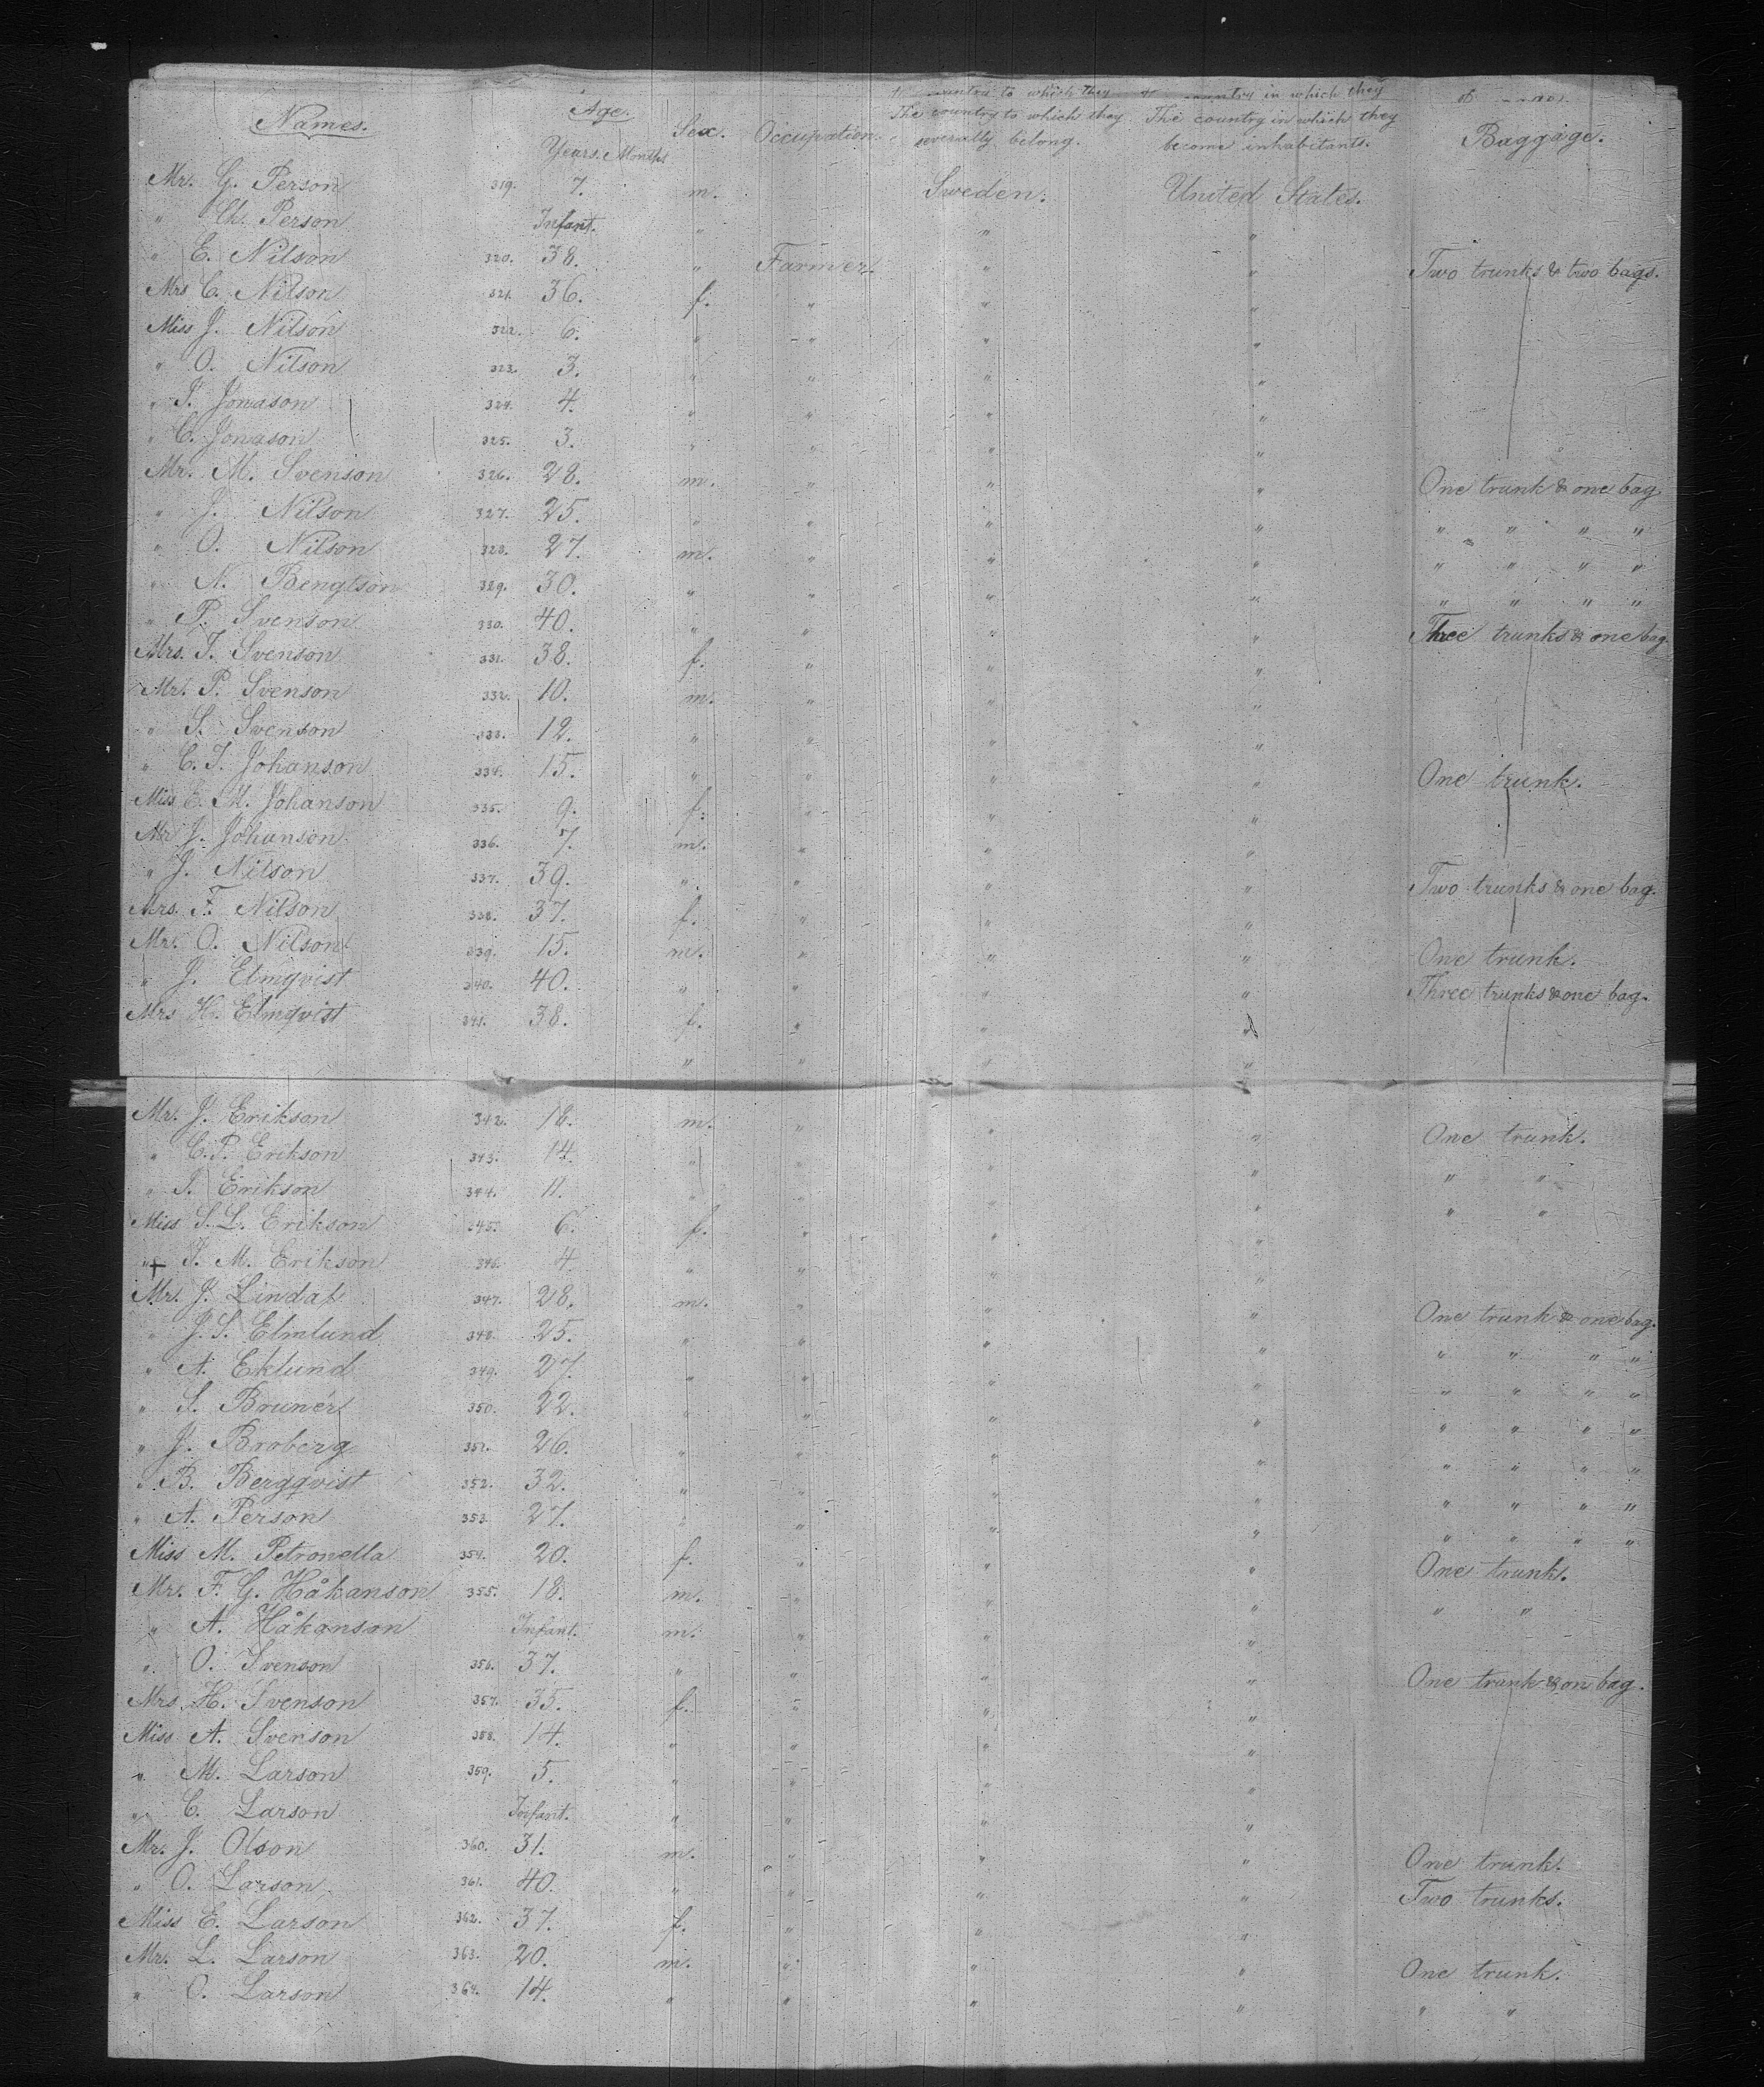 Names. Age. Sex. Occupation. The country to which they severally belong. The country in which they become inhabitants. Baggage.
Years. Months
Mr. G. Person 319. 7. m. Sweden. United States.
" Ch. Person Infant. " " "
" E. Nilson 320. 38. " Farmer. " " Two trunks & two bags.
Mrs C. Nilson 321. 36. f. " " "
Miss J. Nilson 322. 6. " " " "
" O. Nilson 323. 3. " " " "
" I. Jonason 324. 4. " " " "
" C. Jonason 325. 3. " " " "
Mr. M. Svenson 326. 28. m. " " " One trunk & one bag
" J. Nilson 327. 25. " " " " " " " "
" O. Nilson 328. 27. m. " " " " " " "
" N. Bengtson 329. 30. " " " " " " " "
" P. Svenson 330. 40. " " " " Three trunks & one bag
Mrs. I. Svenson 331. 38. f. " " "
Mr. P. Svenson 332. 10. m. " " "
" S. Svenson 333. 12. " " " "
" C. I. Johanson 334. 15. " " " " One trunk.
Miss E. M. Johanson 335. 9. f. " " "
Mr J. Johanson 336. 7. m. " " "
" J. Nilson 337. 39. " " " " Two trunks & one bag.
Mrs. F. Nilson 338. 37. f. " " "
Mr. O. Nilson 339. 15. m. " " " One trunk.
" J. Elmqvist 340. 40. " " " " Three trunks & one bag.
Mrs H. Elmqvist 341. 38. f. " " "
" " " "
Mr. J. Erikson 342. 18. m. " " " One trunk.
" C. P. Erikson 343. 14. " " " " " "
" I. Erikson 344. 11. " " " " " "
Miss S. L. Erikson 345. 6. f. " " "
" I. M. Erikson 346. 4 " " " "
Mr. J. Lindal 347. 28. m. " " " One trunk & one bag.
" J. S. Elmlund 348. 25. " " " " " " " "
" A. Eklund 349. 27. " " " " " " " "
" S. Brunér 350. 22. " " " " " " " "
" J. Broberg 351. 26. " " " " " " " "
" B. Bergqvist 352. 32. " " " " " " " "
" A. Person 353. 27. " " " " " " " "
Miss M. Petronella 354. 20. f. " " " One trunk.
Mr. F. G. Håkanson 355. 18. m. " " " " "
" A. Håkanson Infant. m. " " "
" O. Svenson 356. 37. " " " " One trunk & on bag.
Mrs H. Svenson 357. 35. f. " " "
Miss A. Svenson 358. 14. " " " "
" M. Larson 359. 5. " " " "
" C. Larson Infant. " " " "
Mr. J. Olson 360. 31. m. " " " One trunk.
" O. Larson 361. 40. " " " " Two trunks.
Miss E. Larson 362. 37. f. " " "
Mr. L. Larson 363. 20. m. " " " One trunk.
" O. Larson 364. 14. " " " " " "